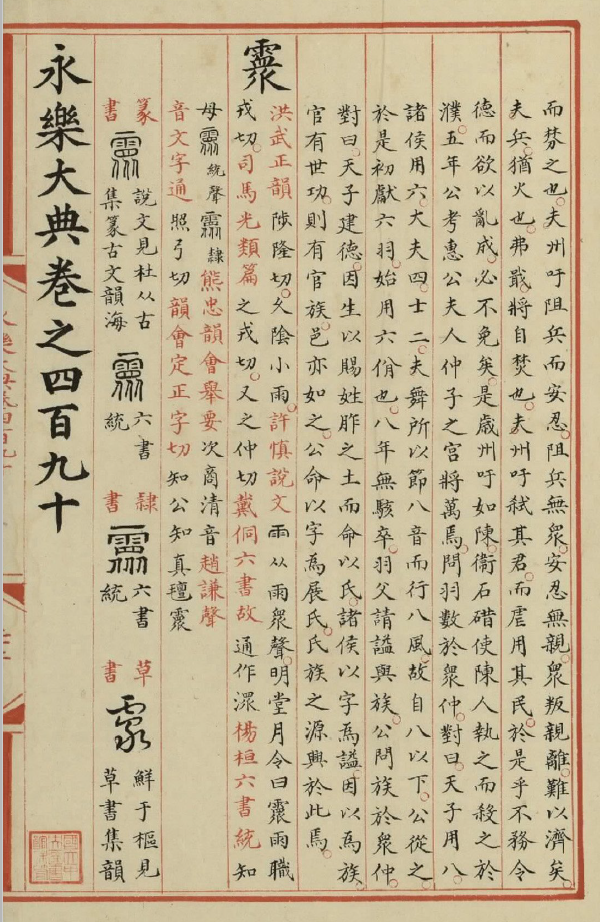 而棼之也夫州吁阻兵而安忍阻兵無衆安忍無親衆叛親離難以濟矣
夫兵猶火也弗戢將自焚也夫州吁弒其君而虐用其民於是乎不務令
德而欲以亂成必不免矣是歲州吁如陳衞石碏使陳人執之而殺之於
濮五年公考惠公夫人仲子之宫將萬焉問羽數於衆仲對曰天子用八
諸侯用六大夫四士二夫舞所以節八音而行八風故自八以下公從之
於是初獻六羽始用六佾也八年無駭卒羽父請謚與族公問族於衆仲
對曰天子建德因生以賜姓胙之土而命以氏諸侯以字爲謚因以爲族
官有世功則有官族邑亦如之公命以字爲展氏氏族之源興於此焉
霥
洪武正韻陟隆切夂陰小雨許慎說文雨从雨衆聲明堂月令曰霥雨職
戎切司馬光類篇之戎切又之仲切戴侗六書故通作潨楊桓六書統知
母霥統聲霥隸熊忠韻會舉要次商清音趙謙聲
音文字通照弓切韻會定正字切知公知真邅霥
篆書
霥
說文見杜从古
集篆古文韻海
霥
六書
統
隸書
霥
六書
統
草書
霥
鮮于樞見
草書集韻
永樂大典卷之四百九十